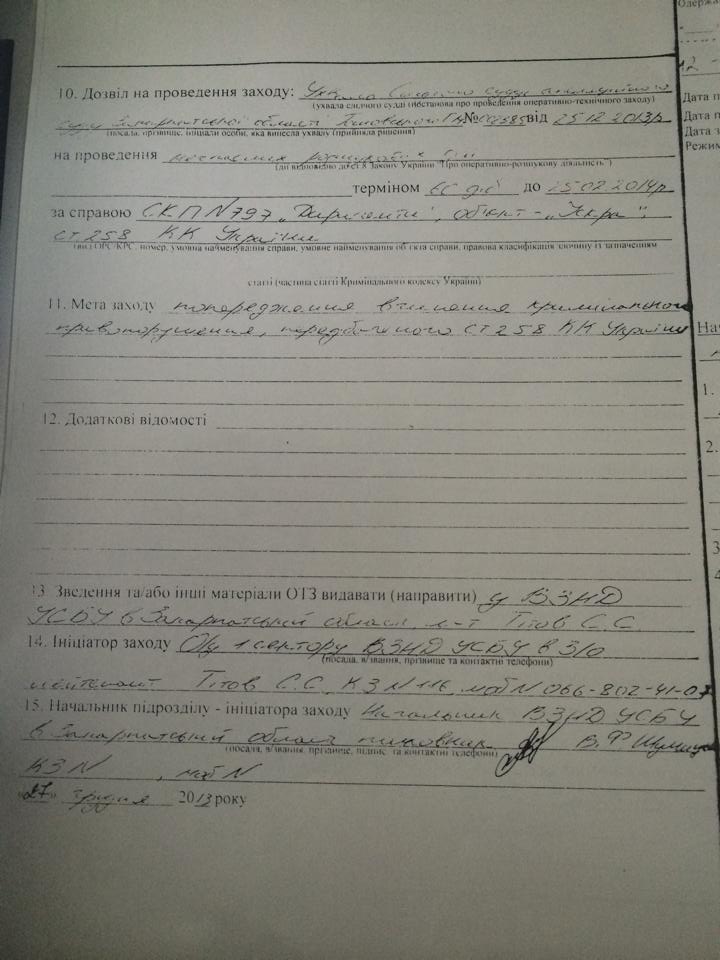 10. Дозвіл на проведення заходу: Ухвала слідчого судді апеляційного
(ухвала слідчого судді (постанова про проведення оперативно-технічного заходу)
суду Закарпатської області № від 25.12.2013р
(посада, прізвище, ініціали особи, яка винесла ухвалу (прийняла рішення)
на проведення негласних розшукових дій
(дії відповідно до ст.8 Закону України "Про оперативно-розшукову діяльність")
терміном 60 діб до 25.02.2014р
за справою СКП N797 об'єкт -
ст. 258 КК України
(вид ОРС/КРС, номер, умовна найменування справи, умовне найменування об'єкта справи, правова класифікація злочину із зазначенням
статті (частина статті Кримінального кодексу України)
11. Мета заходу попередження вчинення кримінального
правопорушення, передбаченого ст 258 КК України
12. Додаткові відомості
13. Зведення та/або інші матеріали ОТЗ видавати (направити) у ВЗНД
УСБУ в Закарпатській області, л-т Тітов С.С.
14. Ініціатор заходу О/у 1 сектору ВЗНД УСБУ в З/о
(посада, в/звання, прізвище та контактні телефони)
лейтенант Тітов С.С. КЗ N 116, моб N 066-802-41-07
15. Начальник підрозділу - ініціатора заходу Начальник ВЗНД УСБУ
в Закарпатській області В.Ф.
(посада, в/звання, прізвище, підпис та контактні телефони)
КЗ N , моб N
«27» грудня 2013 року
Дата п
Дата п
Дата з
Режим
1.
2.
3
4